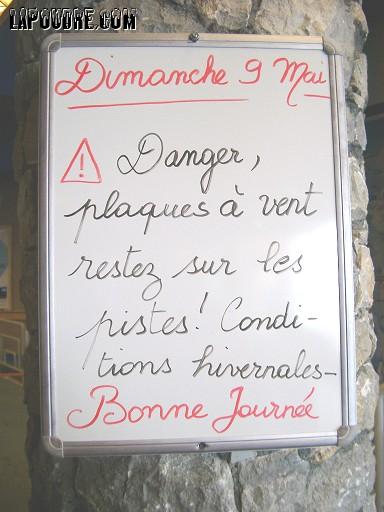 LAPOUDRE.COM
Dimanche 9 Mai
! Danger,
plaques à vent
restez sur les
pistes! Condi-
tions hivernales-
Bonne Journée